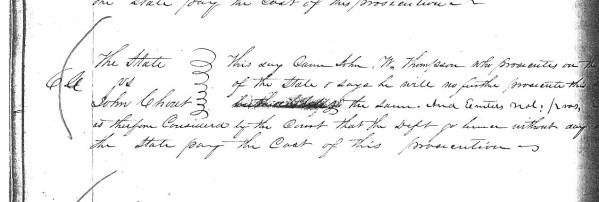 the State pay the Cost of this prosecution
The State This day Came John W. Thompson who prosecutes on the
vs of the State & says he will no further prosecute this
John Chout the same. And Enters nol: pros,
is therefore Considered by the Court that the Deft go hence without day
the State pay the Cost of this prosecution